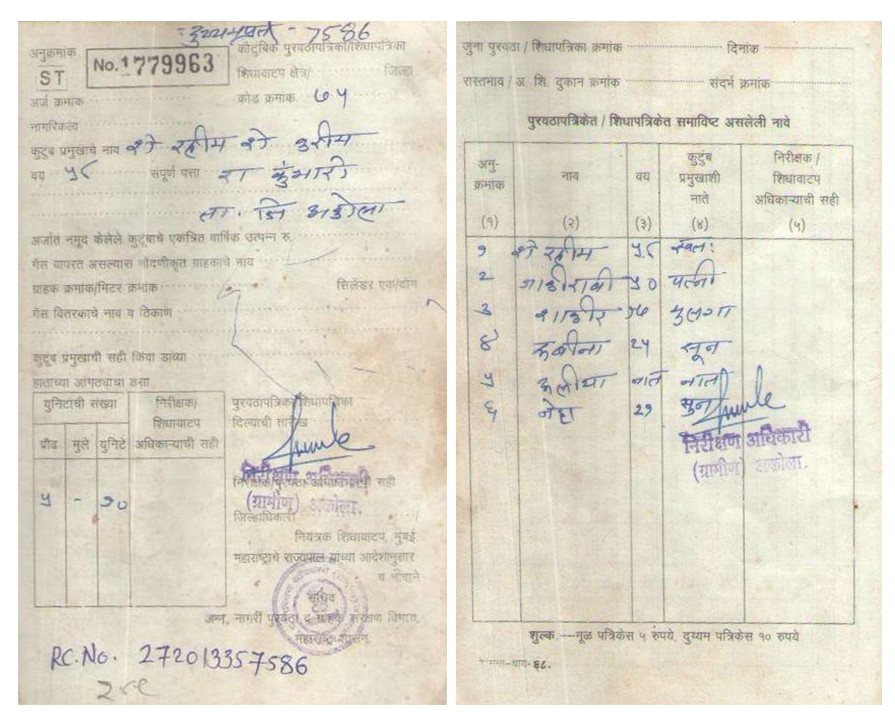 दुय्यमप्रत - 7586
अनुक्रमांक
ST
No.1779963
कौटुंबिक पुरवठापत्रिका/शिधापत्रिका
शिधावाटप क्षेत्र/ जिल्हा
अर्ज क्रमांक
कोड क्रमांक ७५
नागरिकत्व
कुटुंब प्रमुखाचे नाव शे रहीम शे करीम
वय ५८ संपूर्ण पत्ता रा कुंभारी
ता. जि अकोला
अर्जात नमूद केलेले कुटुंबाचे एकत्रित वार्षिक उत्पन्न रु.
गॅस वापरत असल्यास नोंदणीकृत ग्राहकाचे नाव
ग्राहक क्रमांक/मिटर क्रमांक सिलेंडर एक/दोन
गॅस वितरकाचे नाव व ठिकाण
कुटुंब प्रमुखाची सही किंवा डाव्या
हाताच्या आंगठ्याचा ठसा
युनिटांची संख्या
निरीक्षक/
शिधावाटप
अधिकाऱ्याची सही
प्रौढ मुले युनिटे
५ - १०
पुरवठापत्रिका/शिधापत्रिका
दिल्याची तारीख
निरीक्षण अधिकारी
(ग्रामीण) अकोला.
जिल्हाधिकारी
नियंत्रक शिधावाटप, मुंबई.
महाराष्ट्राचे राज्यपाल यांच्या आदेशानुसार
व नावाने
सचिव
अन्न, नागरी पुरवठा व ग्राहक संरक्षण विभाग,
महाराष्ट्र शासन
RC.No. 272013357586
जुना पुरवठा / शिधापत्रिका क्रमांक दिनांक
रास्तभाव / अ. शि. दुकान क्रमांक संदर्भ क्रमांक
पुरवठापत्रिकेत / शिधापत्रिकेत समाविष्ट असलेली नावे
अनु-
क्रमांक
नाव
वय
कुटुंब
प्रमुखाशी
नाते
निरीक्षक /
शिधावाटप
अधिकाऱ्याची सही
(१) (२) (३) (४) (५)
१ शे रहीम ५८ स्वतः
२ ५० पत्नी
३ मुलगा
४ २५ सून
५ नात
६ नेहा २१ सुन
निरीक्षण अधिकारी
(ग्रामीण) अकोला.
शुल्क.—मूळ पत्रिकेस ५ रुपये, दुय्यम पत्रिकेस १० रुपये